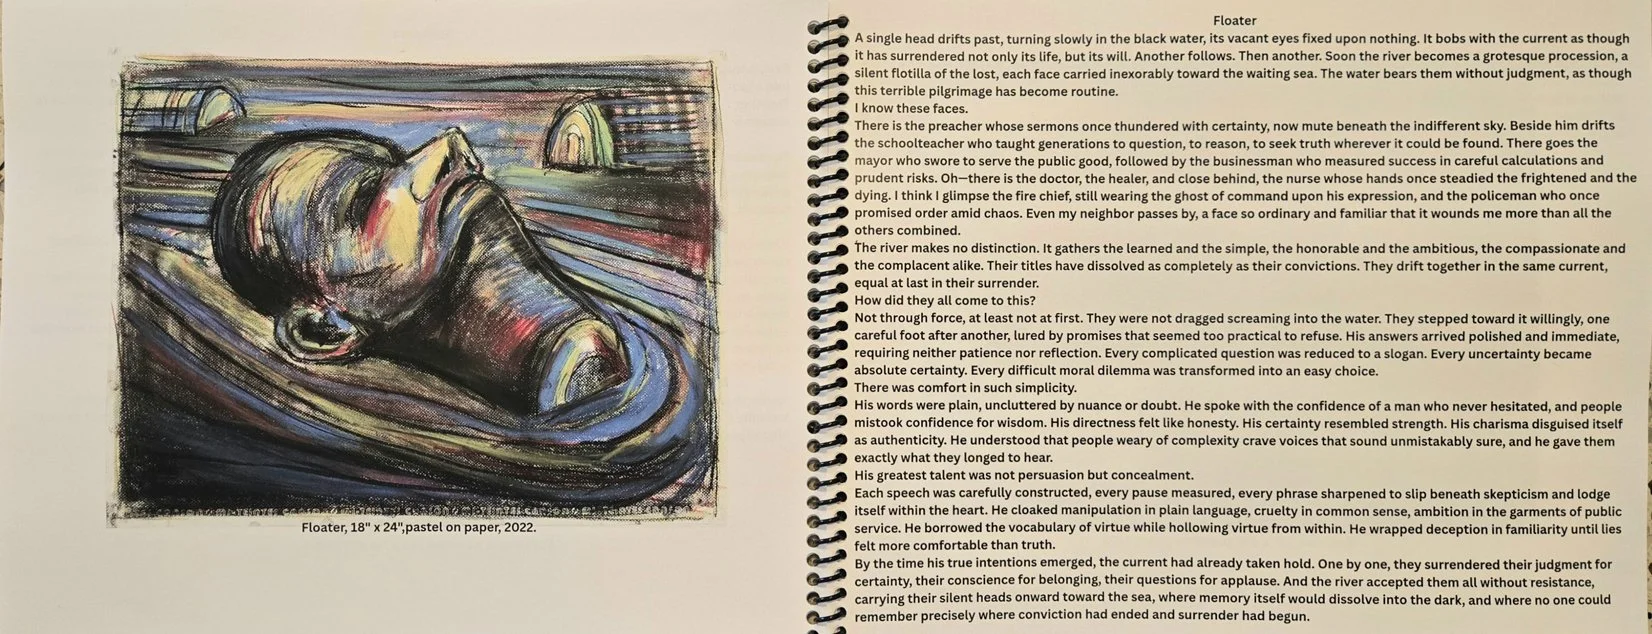 Floater, 18" x 24",pastel on paper, 2022.
Floater
A single head drifts past, turning slowly in the black water, its vacant eyes fixed upon nothing. It bobs with the current as though
it has surrendered not only its life, but its will. Another follows. Then another. Soon the river becomes a grotesque procession, a
silent flotilla of the lost, each face carried inexorably toward the waiting sea. The water bears them without judgment, as though
this terrible pilgrimage has become routine.
I know these faces.
There is the preacher whose sermons once thundered with certainty, now mute beneath the indifferent sky. Beside him drifts
the schoolteacher who taught generations to question, to reason, to seek truth wherever it could be found. There goes the
mayor who swore to serve the public good, followed by the businessman who measured success in careful calculations and
prudent risks. Oh—there is the doctor, the healer, and close behind, the nurse whose hands once steadied the frightened and the
dying. I think I glimpse the fire chief, still wearing the ghost of command upon his expression, and the policeman who once
promised order amid chaos. Even my neighbor passes by, a face so ordinary and familiar that it wounds me more than all the
others combined.
The river makes no distinction. It gathers the learned and the simple, the honorable and the ambitious, the compassionate and
the complacent alike. Their titles have dissolved as completely as their convictions. They drift together in the same current,
equal at last in their surrender.
How did they all come to this?
Not through force, at least not at first. They were not dragged screaming into the water. They stepped toward it willingly, one
careful foot after another, lured by promises that seemed too practical to refuse. His answers arrived polished and immediate,
requiring neither patience nor reflection. Every complicated question was reduced to a slogan. Every uncertainty became
absolute certainty. Every difficult moral dilemma was transformed into an easy choice.
There was comfort in such simplicity.
His words were plain, uncluttered by nuance or doubt. He spoke with the confidence of a man who never hesitated, and people
mistook confidence for wisdom. His directness felt like honesty. His certainty resembled strength. His charisma disguised itself
as authenticity. He understood that people weary of complexity crave voices that sound unmistakably sure, and he gave them
exactly what they longed to hear.
His greatest talent was not persuasion but concealment.
Each speech was carefully constructed, every pause measured, every phrase sharpened to slip beneath skepticism and lodge
itself within the heart. He cloaked manipulation in plain language, cruelty in common sense, ambition in the garments of public
service. He borrowed the vocabulary of virtue while hollowing virtue from within. He wrapped deception in familiarity until lies
felt more comfortable than truth.
By the time his true intentions emerged, the current had already taken hold. One by one, they surrendered their judgment for
certainty, their conscience for belonging, their questions for applause. And the river accepted them all without resistance,
carrying their silent heads onward toward the sea, where memory itself would dissolve into the dark, and where no one could
remember precisely where conviction had ended and surrender had begun.